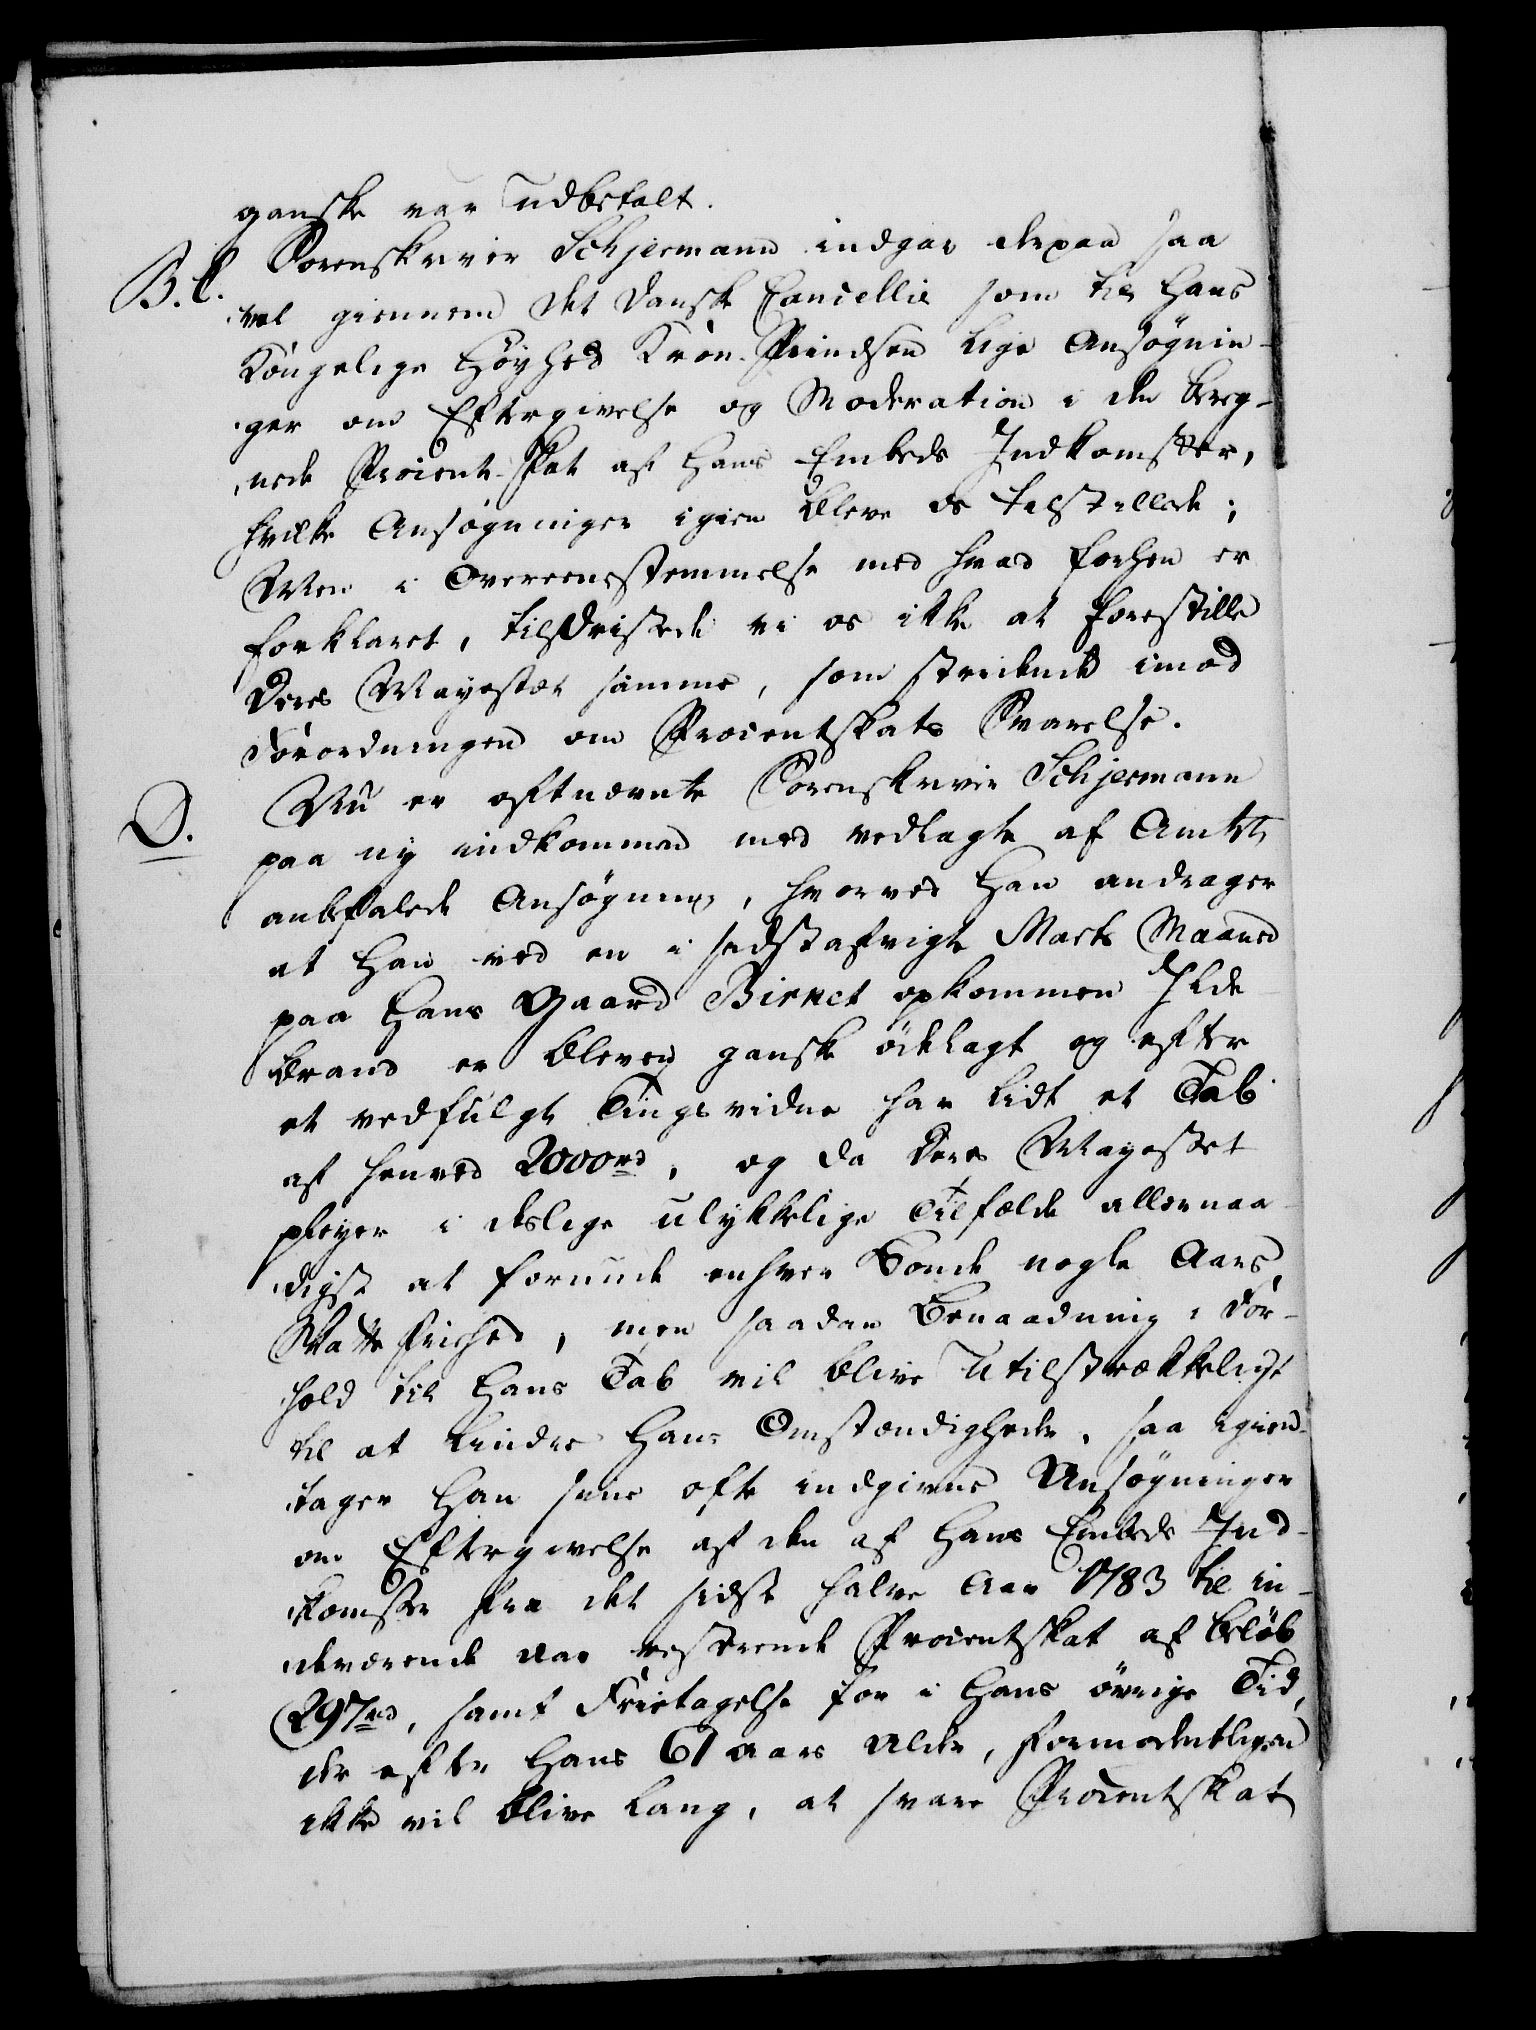 ganske var udbetalt.
B.C. Sorenskriver Schjermann indgav derpaa saa
vel giennem det danske Cancellie som til Hans
Kongelige Høyhed Kron-Prindsen lige Ansøgnin-
ger om Eftergivelse og Moderation i den bereg-
nede Procent-Skat af Hans Embeds Indkomster,
hvilke Ansøgninger igien bleve os tilstillede;
Men i Overeensstemmelse med hvad forhen er
forklaret, tildristede vi os ikke at forestille
Deres Mayestæt samme, som stridende imod
Forordningen om Procentskats Svarelse.
D. Nu er oftnævnte Sorenskriver Schjermann
paa ny indkommen med vedlagte af Amtet
anbefalede Ansøgning, hvorved Han andrager
at Han ved en i sidstafvigte Marts Maaned
paa Hans Gaard Birket opkommen Ilde-
brand er bleven ganske ødelagt og efter
et vedfulgt Tingsvidne har lidt et Tab
af henved 2000rd, og da Deres Mayestet
pleyer i deslige ulykkelige Tilfælde allernaa-
digst at forunde enhver Bonde nogle Aars
Skatte Friehed, men saadan Benaadning i For-
hold til Hans Tab vil blive utilstrækkeligt
til at lindre Hans Omstændigheder, saa igien-
tager Han sine ofte indgivne Ansøgninger
om Eftergivelse af den af Hans Embeds Ind-
komster fra det sidste halve Aar 1783 til in-
deværende Aar resterende Procentskat af beløb
297rd, samt Frietagelse for i Hans øvrige Tid,
der efter Hans 61 Aars Alder, formodentligen
ikke vil blive lang, at svare Procentskat